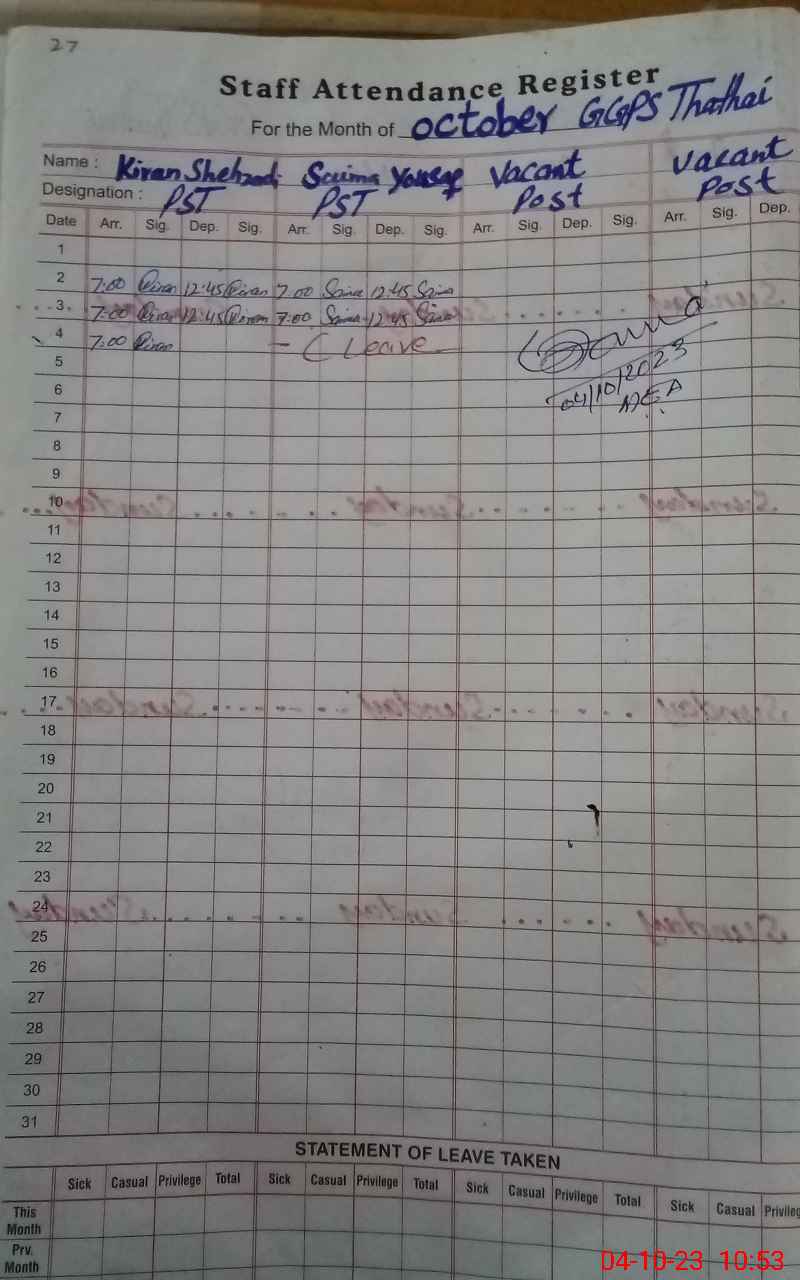 27
Staff Attendance Register
For the Month of October GGPS Thathai
Name : Kiran Shehzadi Saima Yousaf Vacant Vacant
Designation : PST PST Post Post
Date Arr. Sig. Dep. Sig. Arr. Sig. Dep. Sig. Arr. Sig. Dep. Sig. Arr. Sig. Dep.
1
2 7:00 Kiran 12:45 Kiran 7:00 Saima 12:45 Saima
3 7:00 Kiran 12:45 Kiran 7:00 Saima 12:45 Saima
4 7:00 Kiran - C Leave
04/10/2023
5
6
7
8
9
10
11
12
13
14
15
16
17
18
19
20
21
22
23
24
25
26
27
28
29
30
31
STATEMENT OF LEAVE TAKEN
Sick Casual Privilege Total Sick Casual Privilege Total Sick Casual Privilege Total Sick Casual Privileg
This
Month
Prv.
Month
04-10-23 10:53